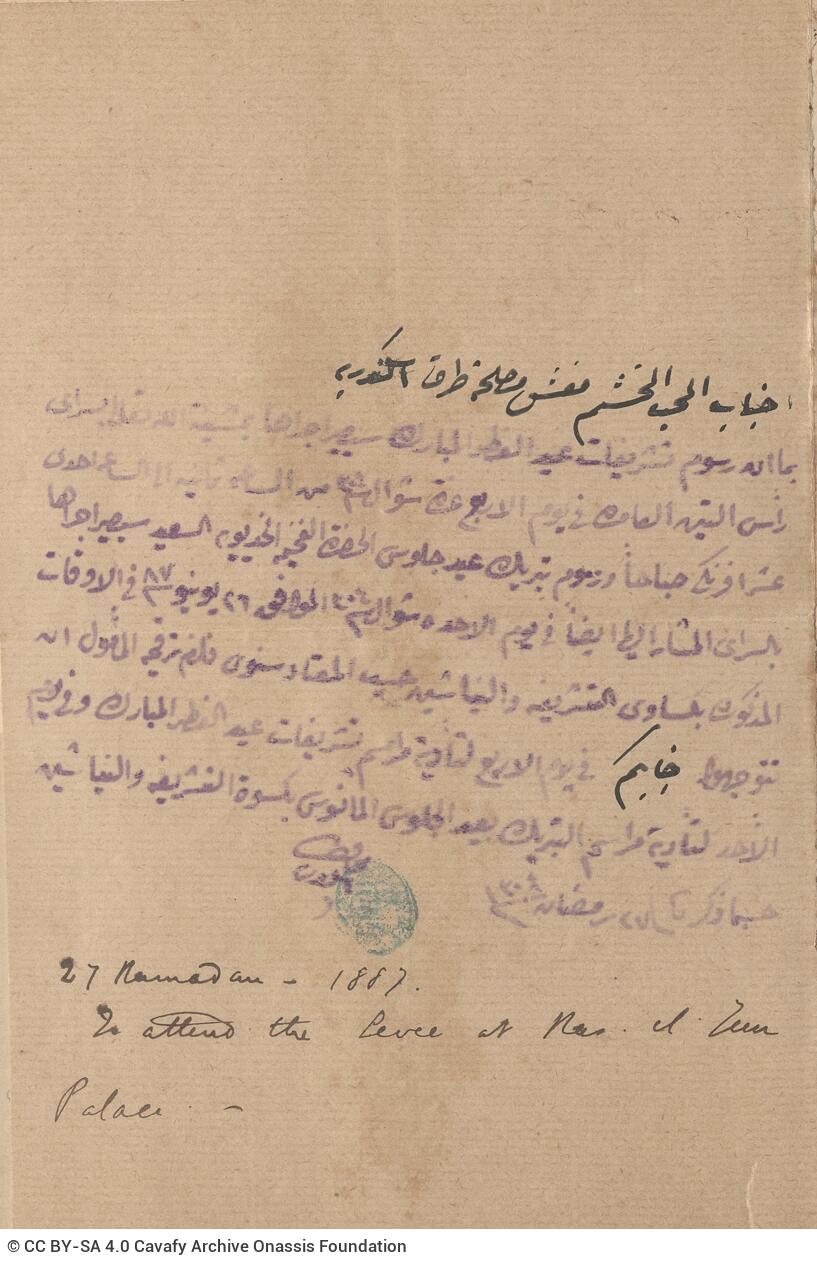 جناب المحب المحتشم مفتش مصلحة طرق اسكندريه
بما ان رسوم تشريفات عيد الفطر المبارك سيصير اجراها بمشيئة الله تعالى بسراى
رأس التين العامره فى يوم الاربع غرة شوال سنة من الساعه ثمانيه الى الساعه احدى
عشر افرنكى صباحاً ورسوم تبريك عيد جلوس الحضرة الفخيمه الخديويه السعيد سيصير اجراها
بالسراى المشار اليها ايضاً فى يوم الاحد ٥ شوال سنة ٣٠٤ الموافق ٢٦ يونيو سنة ٨٧ فى الاوقات
المذكوره بكساوى التشريفه والنياشين حسب المعتاد سنوى فلزم ترقيمه المأمول ان
تتوجهوا جنابكم فى يوم الاربع لتأدية مراسم تشريفات عيد الفطر المبارك وفى يوم
الأحد لتأدية مراسم التبريك بعيد الجلوس المأنوس بكسوة التشريفه والنياشين
حسبما ذكر ٢٧ رمضان سنة
27 Ramadan - 1887.
To attend the Levee at Ras. el Teen
Palace. -
© CC BY-SA 4.0 Cavafy Archive Onassis Foundation